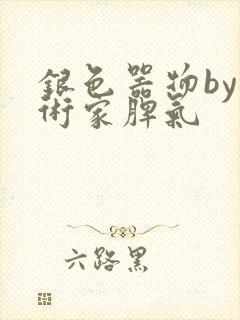 銀色器物by
術家脾氣
六路黑